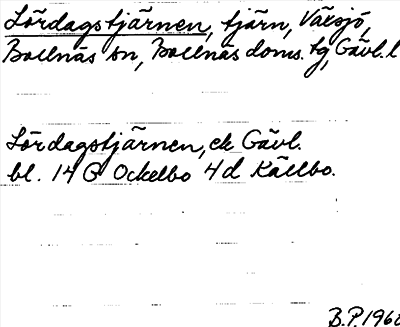 Lördagstjärnen, tjärn, Växsjö,
Bollnäs sn, Bollnäs doms. tg, Gävl. l
Lördagstjärnen, ek Gävl.
bl. 14 G Ockelbo 4d Källbo.
B.P. 1968